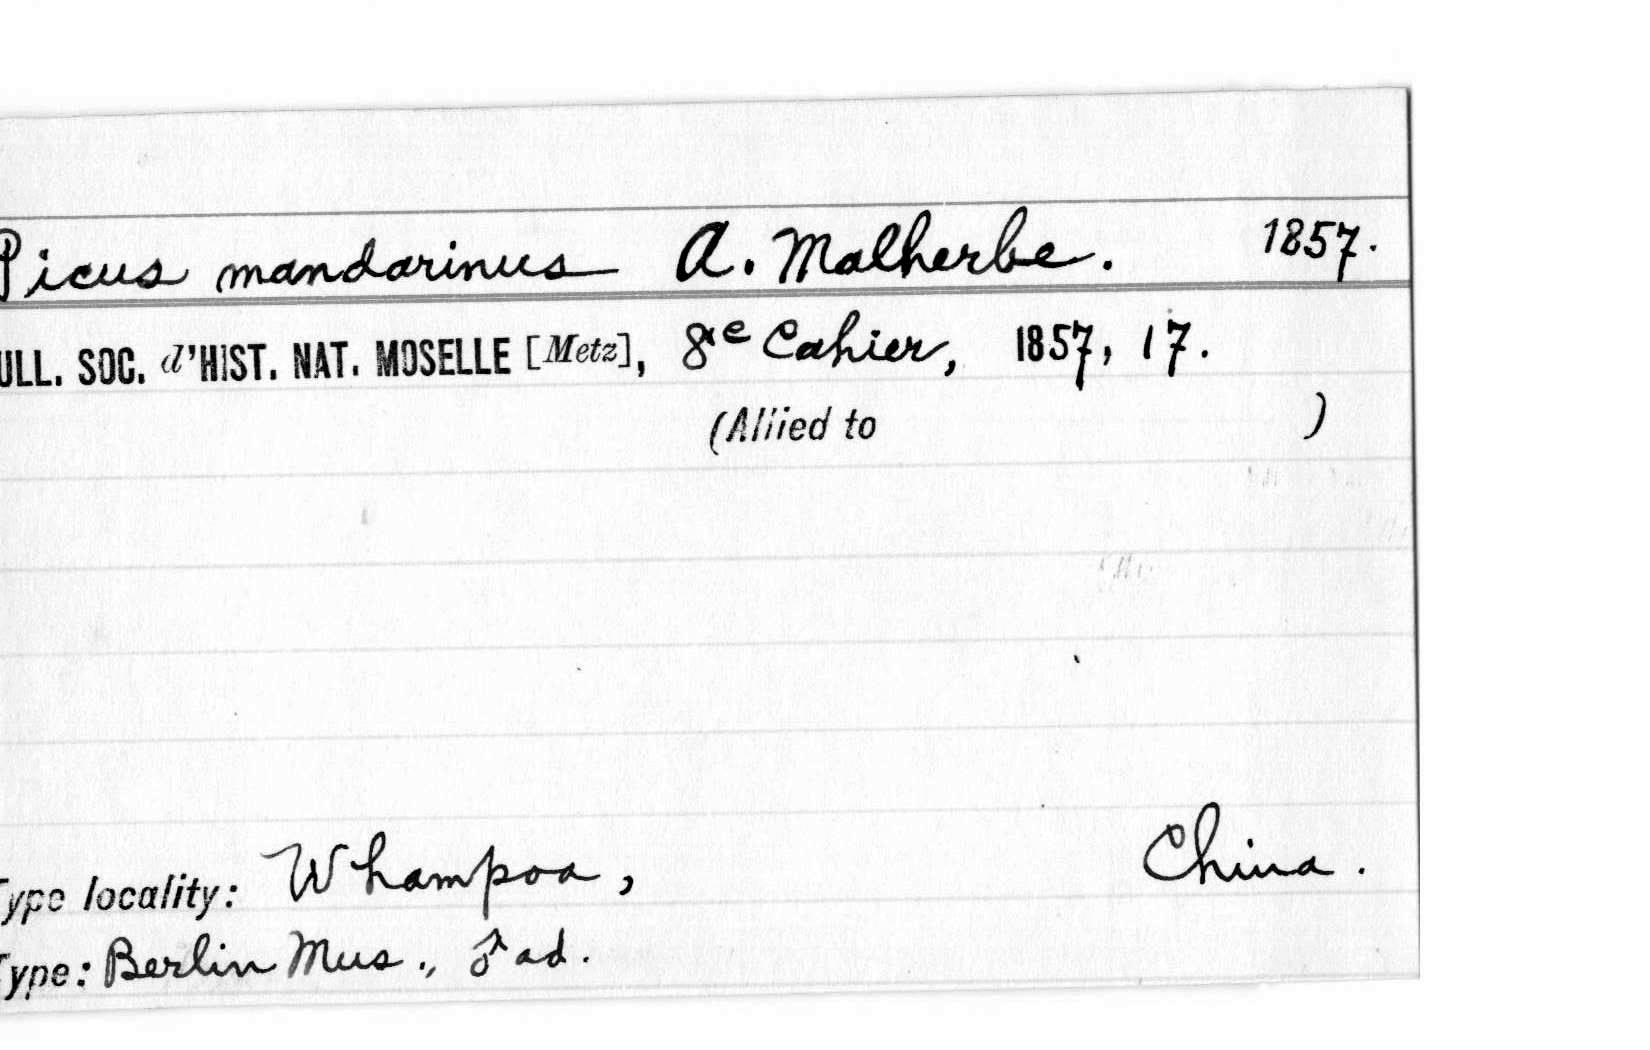 Picus mandarinus A. Malherbe. 1857.
ULL. SOC. d'HIST. NAT. MOSELLE [Metz], 8e Cahier, 1857, 17.
(Allied to )
Type locality: Whampoa, China.
Type: Berlin Mus., ♂ ad.